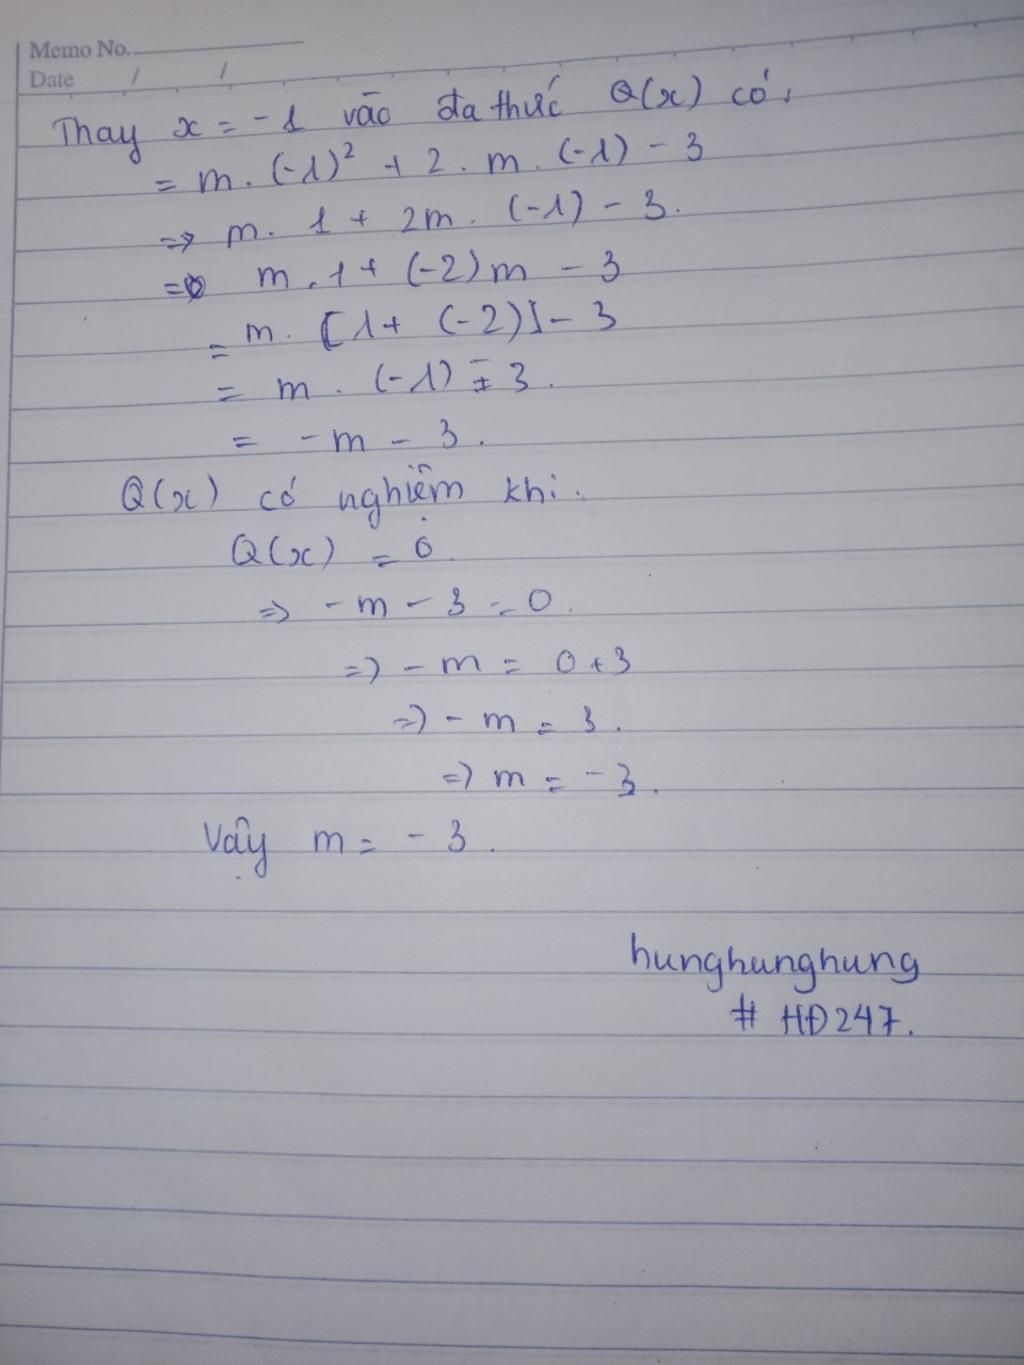 Memo No.
Date / /
Thay x = -1 vào đa thức Q(x) có:
= m. (-1)² + 2. m. (-1) - 3
=> m. 1 + 2m. (-1) - 3.
= m. 1 + (-2)m - 3
= m. [1 + (-2)] - 3
= m. (-1) - 3.
= -m - 3.
Q(x) có nghiệm khi.
Q(x) = 0.
=> -m - 3 = 0.
=> -m = 0 + 3
=> -m = 3.
=> m = -3.
Vậy m = -3.
hunghunghung
# HĐ247.